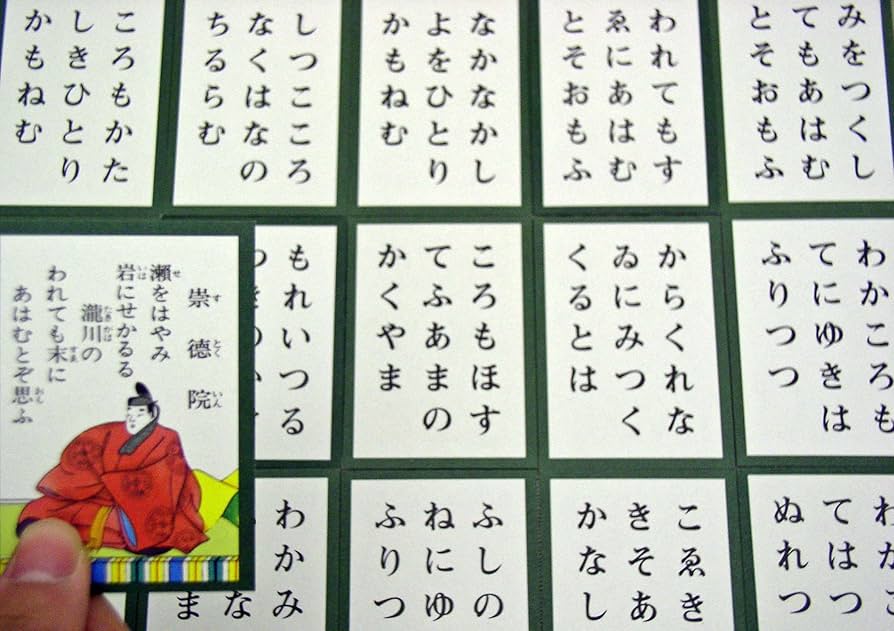 みをつくし
てもあはむ
とそおもふ
われてもす
ゑにあはむ
とそおもふ
なかなかし
よをひとり
かもねむ
しつこころ
なくはなの
ちるらむ
ころもかた
しきひとり
かもねむ
わかころも
てにゆきは
ふりつつ
からくれな
ゐにみつく
くるとは
ころもほす
てふあまの
かくやま
もれいつる
崇德院
瀬をはやみ
岩にせかるる
瀧川の
われても末に
あはむとぞ思ふ
わかこ
てはつ
ぬれつ
こゑき
きそあ
かなし
ふしの
ねにゆ
ふりつ
わかみ
な
ま